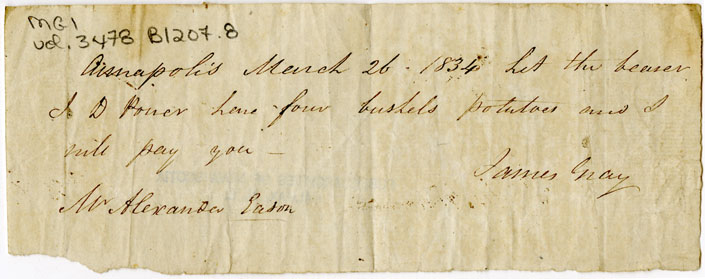 MG1
vol. 3478 B1207.8
Annapolis March 26 - 1834 let the bearer
J D Power have four bushels potatoes and I
will pay you —
James Gray
Mr Alexander Eason